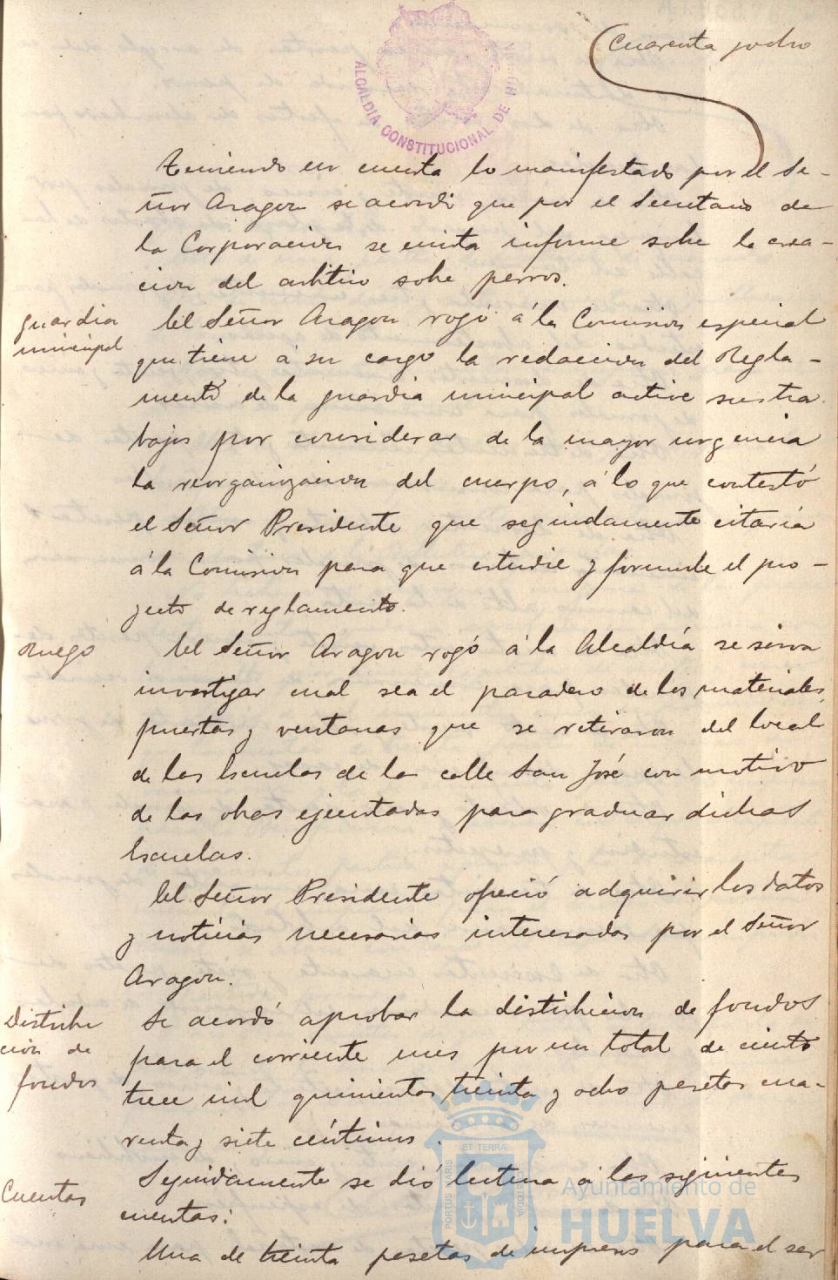 Cuarenta y ocho
ALCALDIA CONSTITUCIONAL DE HUELVA
Teniendo en cuenta lo manifestado por el Se-
ñor Aragon se acordó que por el Secretario de
la Corporacion se emita informe sobre la crea-
cion del arbitrio sobre perros.
guardia
municipal
El Señor Aragon rogó á la Comision especial
que tiene á su cargo la redaccion del Regla-
mento de la guardia municipal active sus tra
bajos por considerar de la mayor urgencia
la reorganizacion del cuerpo, á lo que contestó
el Señor Presidente que seguidamente citaría
á la Comision para que estudie y formule el pro-
yecto de reglamento.
Ruego
El Señor Aragon rogó á la Alcaldía se sirva
investigar cual sea el paradero de los materiales,
puertas y ventanas que se retiraron del local
de las Escuelas de la calle San José con motivo
de las obras ejecutadas para graduar dichas
Escuelas.
El Señor Presidente ofreció adquirir los datos
y noticias necesarias interesadas por el Señor
Aragon.
Distribu
cion de
fondos
Se acordó aprobar la distribucion de fondos
para el corriente mes por un total de ciento
trece mil quinientas treinta y ocho pesetas cua-
renta y siete céntimos.
Cuentas
Seguidamente se dió lectura á las siguientes
cuentas:
Una de treinta pesetas de impresos para el ser
PORTUS MARIS ET TERRA CUSTODIA
Ayuntamiento de
HUELVA